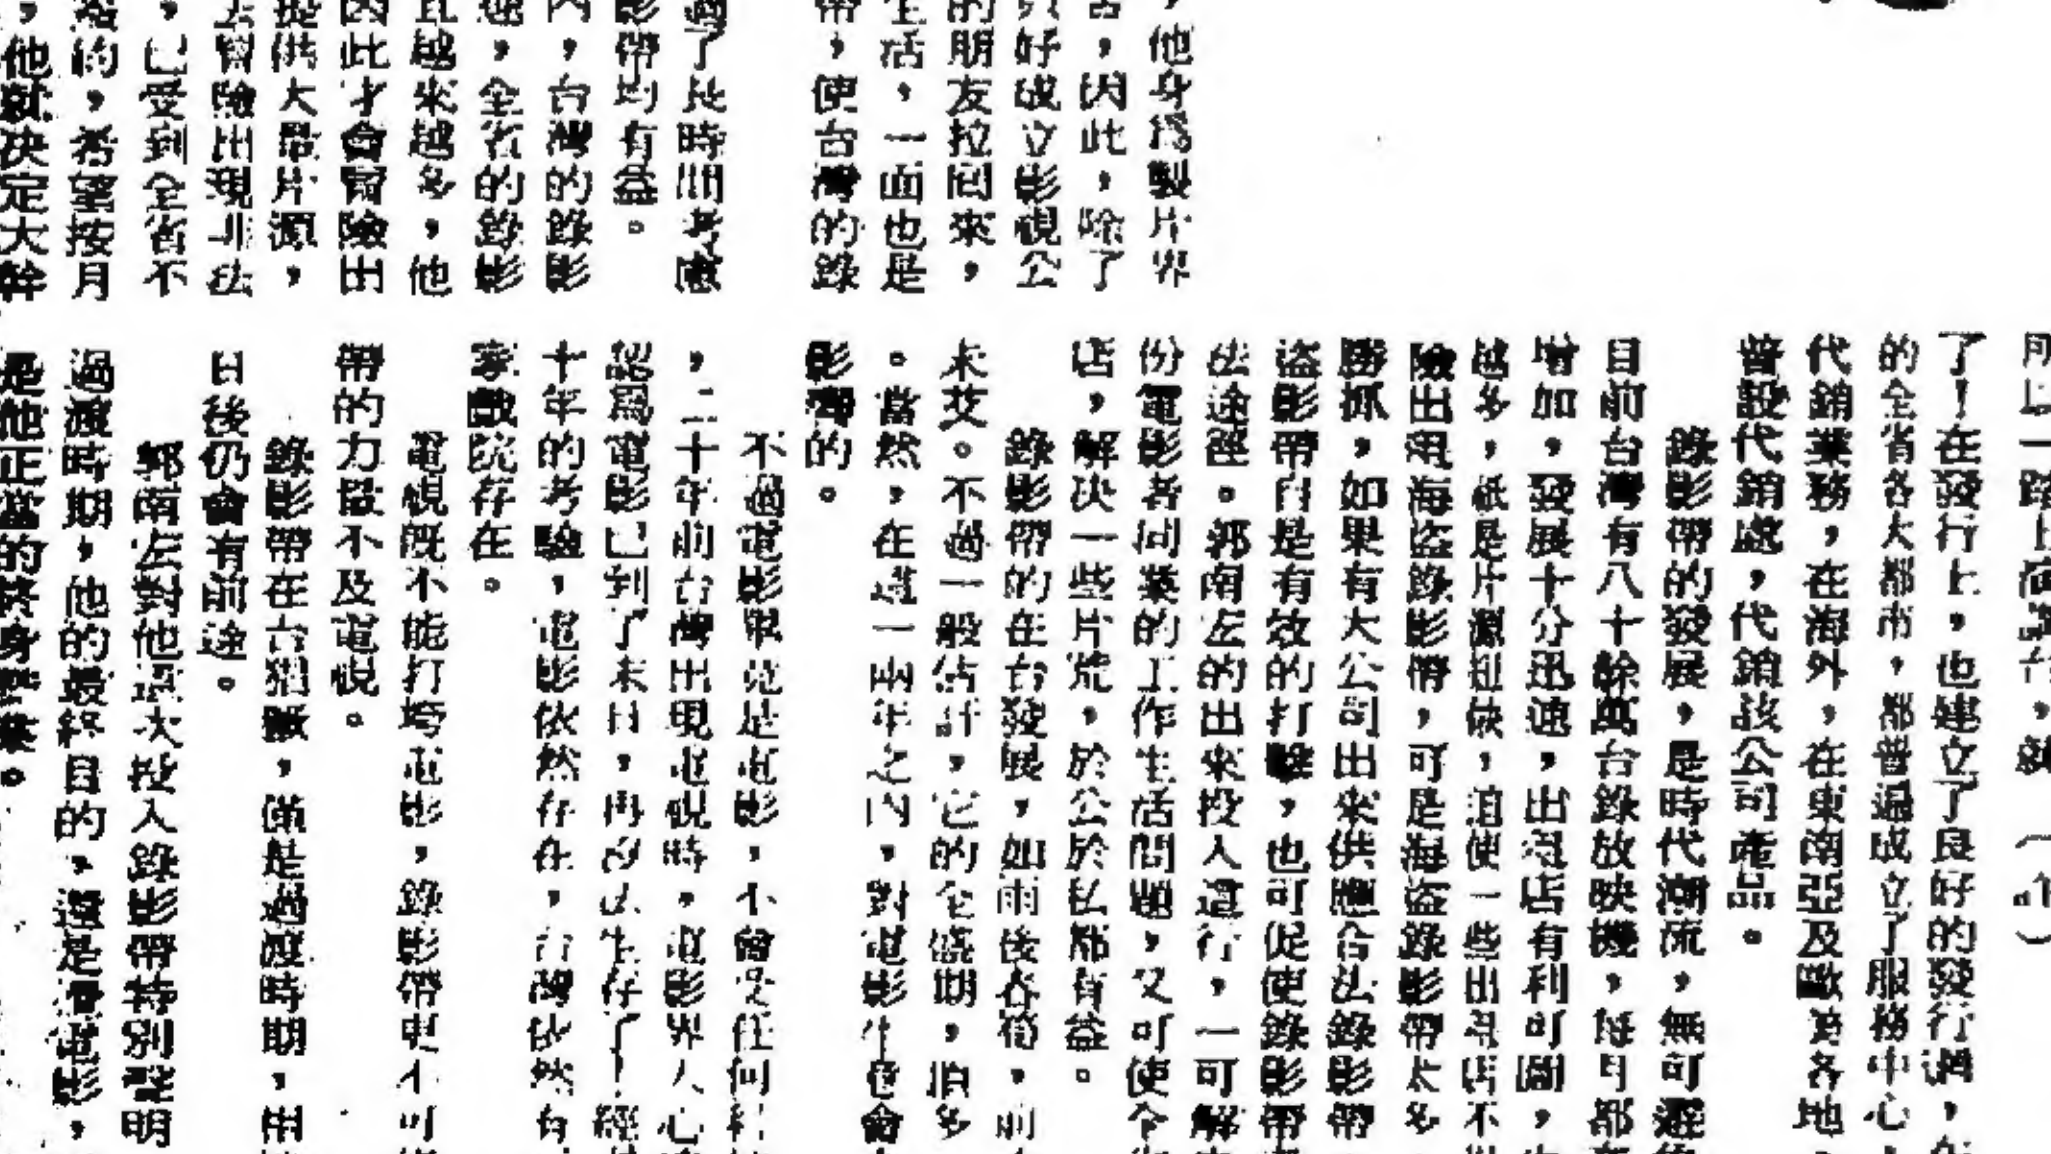 ，他身爲製片界
，因此，除了
好成立影視公
的朋友拉回來，
生活，一面也是
帶，使台灣的錄
過了長時間考慮
影帶均有益。
內，台灣的錄影
，全省的錄影
且越來越多，他
因此才會冒險出
提供大量片源，
冒險出現非法
，已受到全省不
的，希望按月
，他就決定大幹
所以一路上
了！在發行上，也建立了良好的發行網，
的全省各大都市，都普遍成立了服務中心
代銷業務，在海外，在東南亞及歐美各地
普設代銷處，代銷該公司產品。
錄影帶的發展，是時代潮流，無可避
目前台灣有八十餘萬台錄放映機，每月都
增加，發展十分迅速，出租店有利可圖，
越多，祇是片源短缺，迫使一些出租店不
險出租海盜錄影帶，可是海盜錄影帶太多
勝抓，如果有大公司出來供應合法錄影帶
盜影帶自是有效的打擊，也可促使錄影帶
法途徑。郭南宏的出來投入這行，一可解
份電影者同業的工作生活問題，又可使今
店，解决一些片荒，於公於私都有益。
錄影帶的在台發展，如雨後春筍，前
未艾。不過一般估計，它的全盛期，頂多
。當然，在這一兩年之內，對電影生意會
影響的。
不過電影畢竟是電影，不會受任何
，二十年前台灣出現電視時，電影界人心
認爲電影已到了末日，再沒法生存了！經
十年的考驗，電影依然存在，台灣依然有
家戲院存在。
電視既不能打垮電影，錄影帶更不可
帶的力量不及電視。
錄影帶在台猖獗，僅是過渡時期，由
日後仍會有前途。
郭南宏對他這次投入錄影帶特別聲明
過渡時期，他的最終目的，還是電影，
是他正當的終身事業。